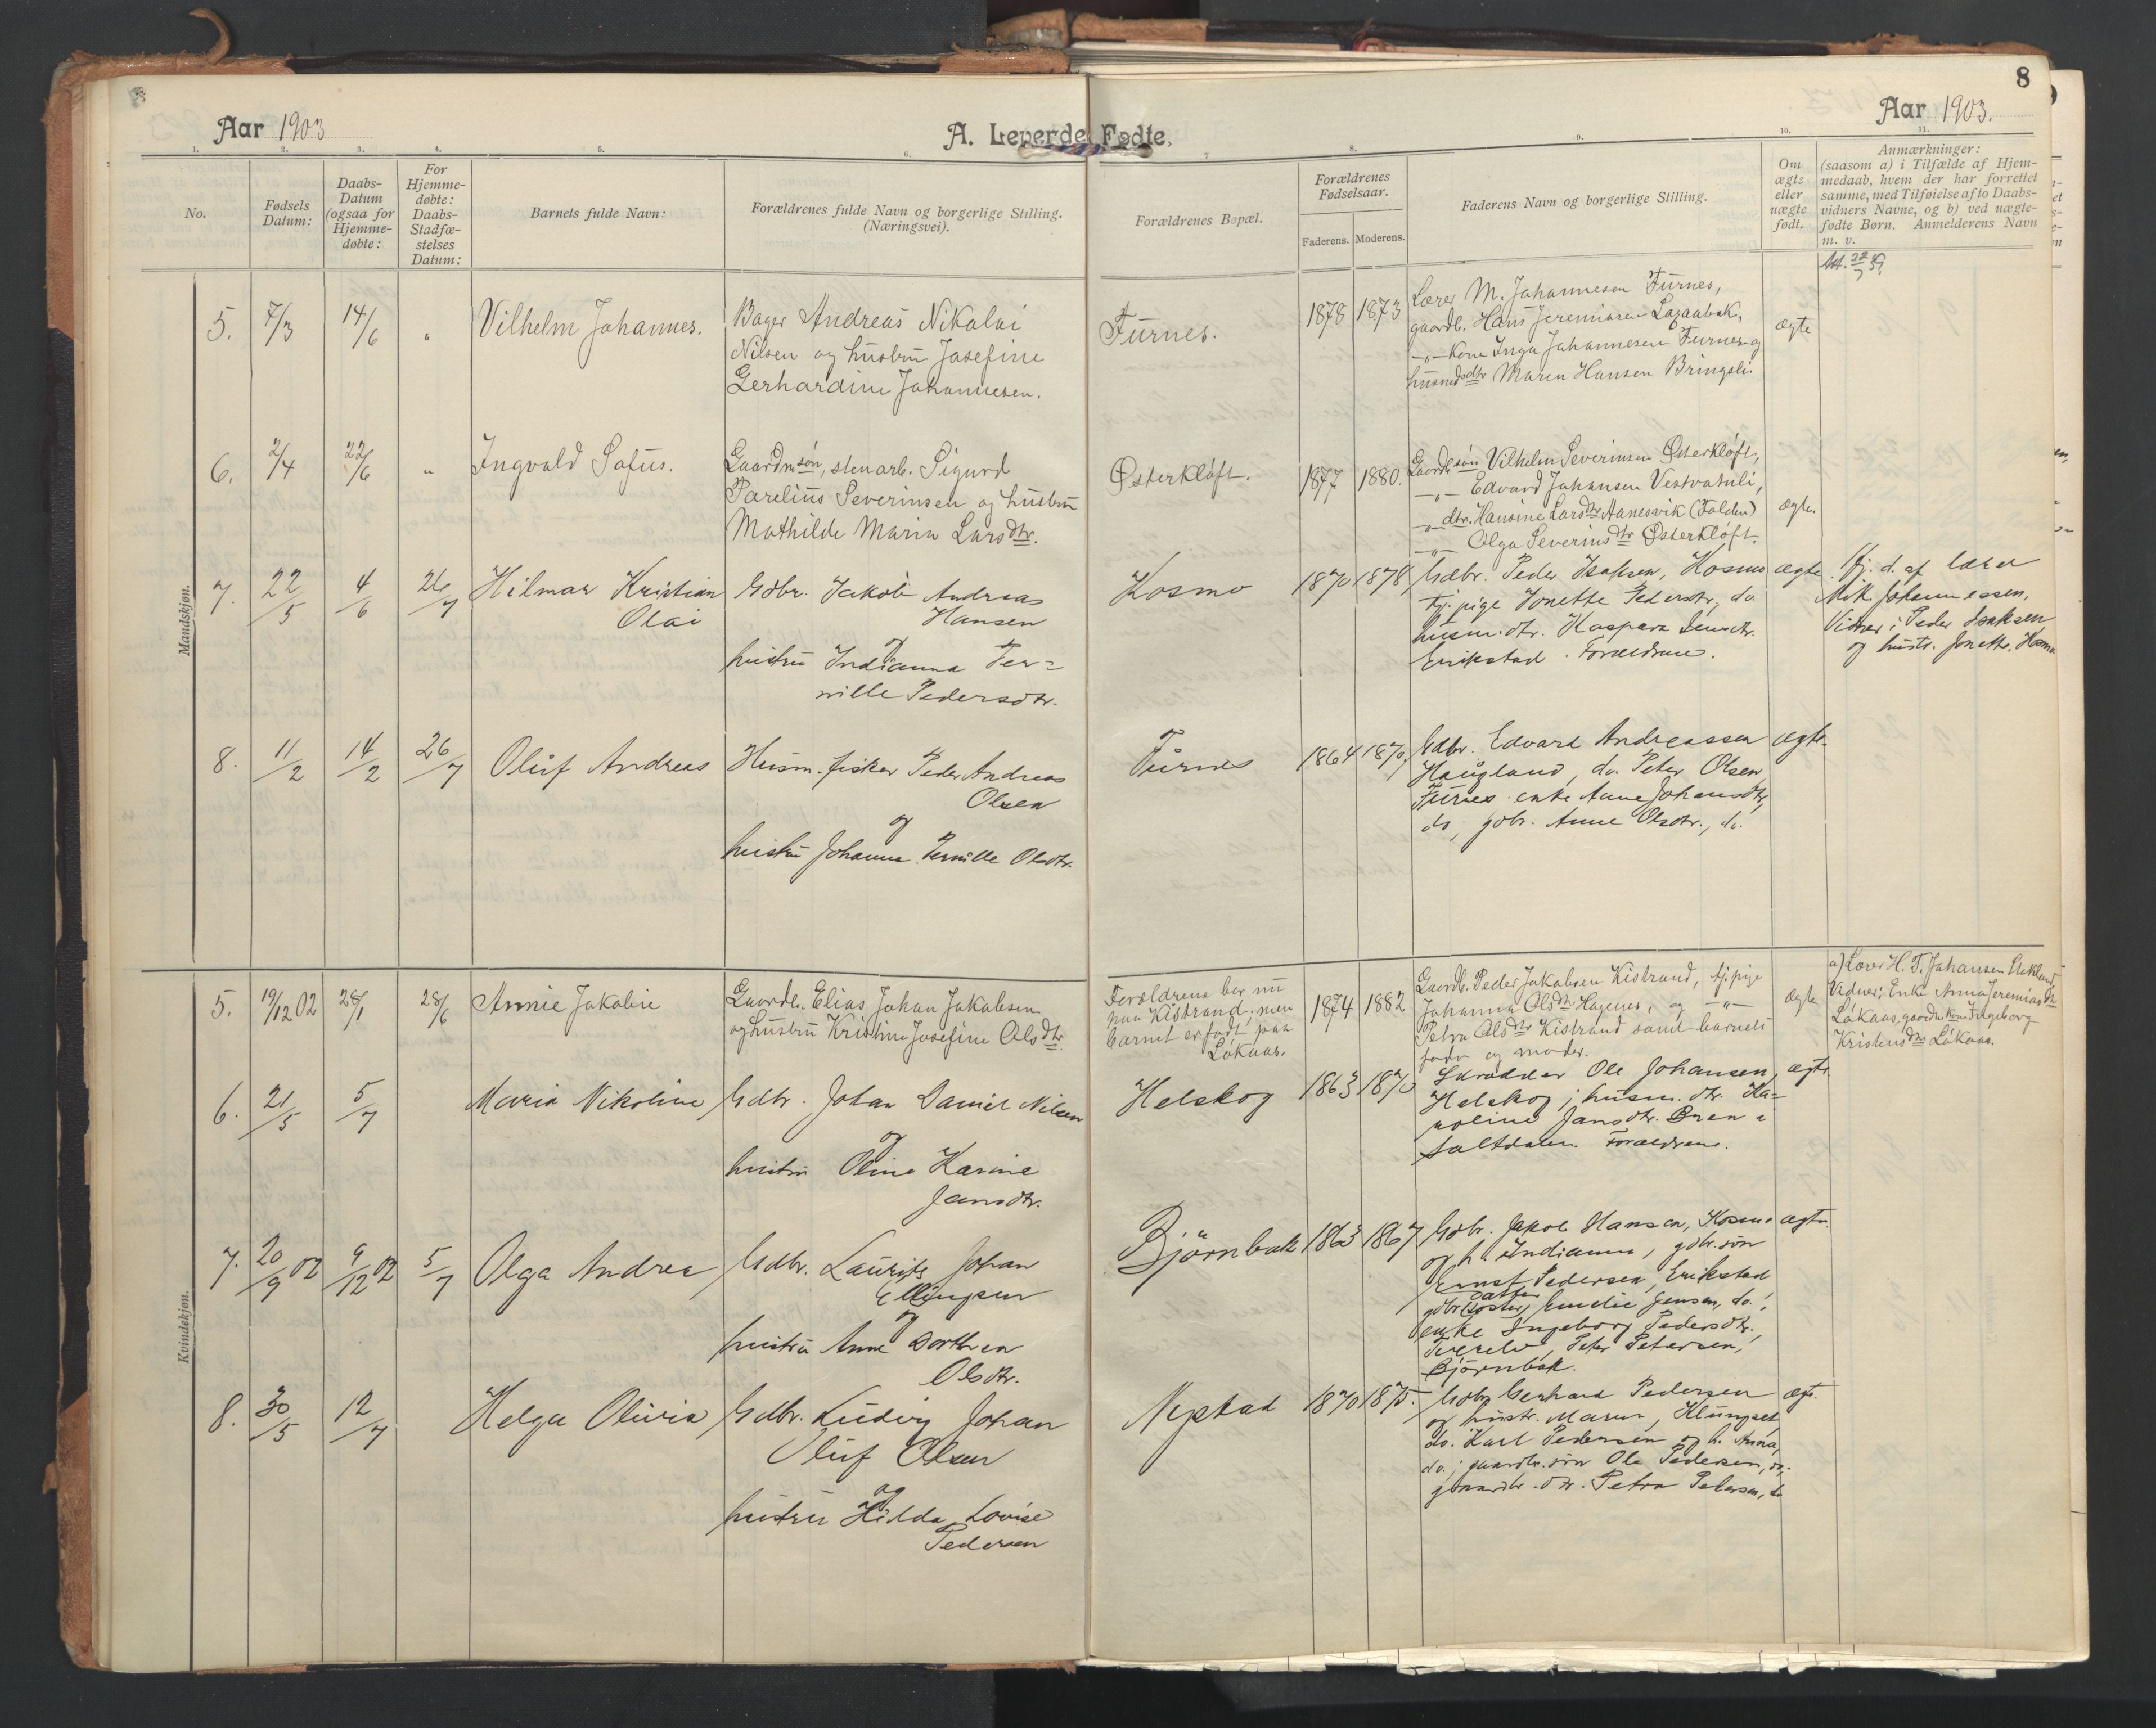 8
Aar 1903
A. Levende Fødte.
Aar 1903.
1. 2. 3. 4. 5. 6. 7. 8. 9. 10. 11.
No.
Fødsels
Datum:
Daabs-
Datum
(ogsaa for
Hjemme-
døbte:
For
Hjemme-
døbte:
Daabs-
Stadfæ-
stelses
Datum:
Barnets fulde Navn:
Forældrenes fulde Navn og borgerlige Stilling.
(Næringsvei).
Forældrenes Bopæl.
Forældrenes
Fødselsaar.
Faderens. Moderens.
Faderens Navn og borgerlige Stilling.
Om
ægte
eller
uægte
født.
Anmærkninger:
(saasom a) i Tilfælde af Hjem-
medaab, hvem der har forrettet
samme, med Tilføielse af to Daabs-
vidners Navne, og b) ved uægte-
fødte Børn. Anmelderens Navn
m. v.
Mandskjøn.
5. 7/3 14/6 " Vilhelm Johannes.
Bager Andreas Nikolai
Nilsen og hustru Josefine
Gerhardine Johannesen.
Furnes.
1878 1873
Lærer M. Johannesen Furnes,
gaardb. Hans Jeremiasen
-"- Kone Inga Johannesen Furnes og
husmdsdtr Maren Hansen Bringsli
ægte
6. 2/4 22/6 " Ingvald Sofus.
Gaardmsøn, stenarb. Sigurd
Parelius Severinsen og hustru
Mathilde Maria Larsdtr.
Østerkløft.
1877 1880.
Gaardbsøn Vilhelm Severinsen Østerkløft,
-"- Edvard Johansen Vestvatnli,
-"- dtr. Hansine Larsdtr Hanesvik (Folden)
-"- Olga Severinsdtr Østerkløft.
ægte.
7. 22/5 4/6 26/7 Hilmar Kristian
Olai
Gdbr. Jakob Andreas
Hansen
og
hustru Indianna Per=
nille Pedersdtr.
Kosmo
1870 1878
Gdbr. Peder Isaksen, Kosmo
tj. pige Jonette Pedersdtr, do
husm. dtr. Kaspara Jensdtr.
Erikstad. Forældrene.
ægte
Hj. d. af lærer
Mik. Johannessen,
Vidner: Peder Isaksen
og hustr. Jonette, Kosmo
8. 11/2 14/2 26/7 Oluf Andreas
Husm. fisker Peder Andreas
Olsen
og
hustru Johanna Pernille Olsdtr.
Furnes
1864 1870.
Gdbr. Edvard Andreassen
Haugland, do. Peter Olsen,
Furnes. enke Anne Johansdtr,
do, gdbr. Anne Olsdtr., do.
ægte.
Kvindekjøn.
5. 19/12 02 28/1 28/6 Annie Jakobine
Gaardb. Elias Johan Jakobsen
og hustru Kristine Josefine Olsdtr.
Forældrene bor nu
paa Kistrand; men
barnet er født paa
Løkaas.
1874 1882
Gaardb. Peder Jakobsen Kistrand, tj. pige
Johanna Olsdtr Hagenes, og -"-
Petra Olsdtr Kistrand samt barnets
fader og moder.
ægte
a) Lærer H. T. Johansen
Vidner: Enke Anna Jeremiasdtr
Løkaas, gaardm. kone Ingeborg
Kristensdtr Løkaas.
6. 21/5 5/7 Maria Nikoline
Gdbr. Johan Daniel Nilsen
og
hustru Oline Karine
Jansdtr.
Helskog
1863 1870
Skrædder Ole Johansen,
Helskog; husm. dtr. Ka-
roline Jansdtr. Bren i
Saltdalen. Forældrene.
ægte
7. 20/9 02 9/12 02 5/7 Olga Andrea
Gdbr. Laurits Johan
Ellingsen
og
hustru Anne Dorthea
Olsdtr.
Bjørnbak
1863 1867
Gdbr. Jakob Hansen, Kosmo
og h. Indianna, gdbr. søn
Ernst Pedersen, Erikstad
datter
gdbr (søster) Emelie Jensen, do.,
enke Ingeborg Pedersdtr.,
Tverelv, Peter Petersen,
Bjørnbak.
ægte.
8. 30/5 12/7 Helga Olivia
Gdbr. Ludvig Johan
Oluf Olsen
og
hustru Hilda Lovise
Pedersen
Nystad
1870 1875.
Gdbr. Gerhard Pedersen
og hustr. Maren, Klungset,
do. Karl Pedersen og h. Anna,
do.; gaardbr. søn Ole Pedersen, do;
gaardbr. dtr. Petra Petersen, do
ægte.